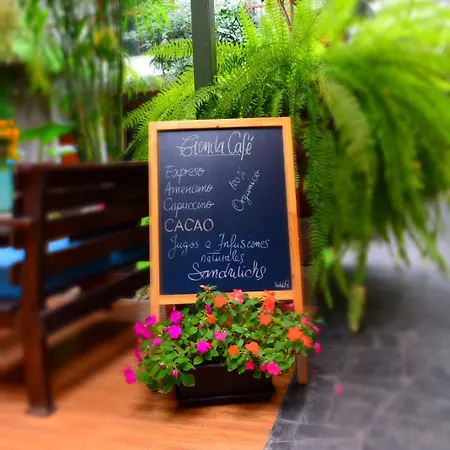 Tienda Café
Expreso
Americano
Capuccino
100%
Organico
CACAO
Jugos e Infusiones
naturales
Sandwichs